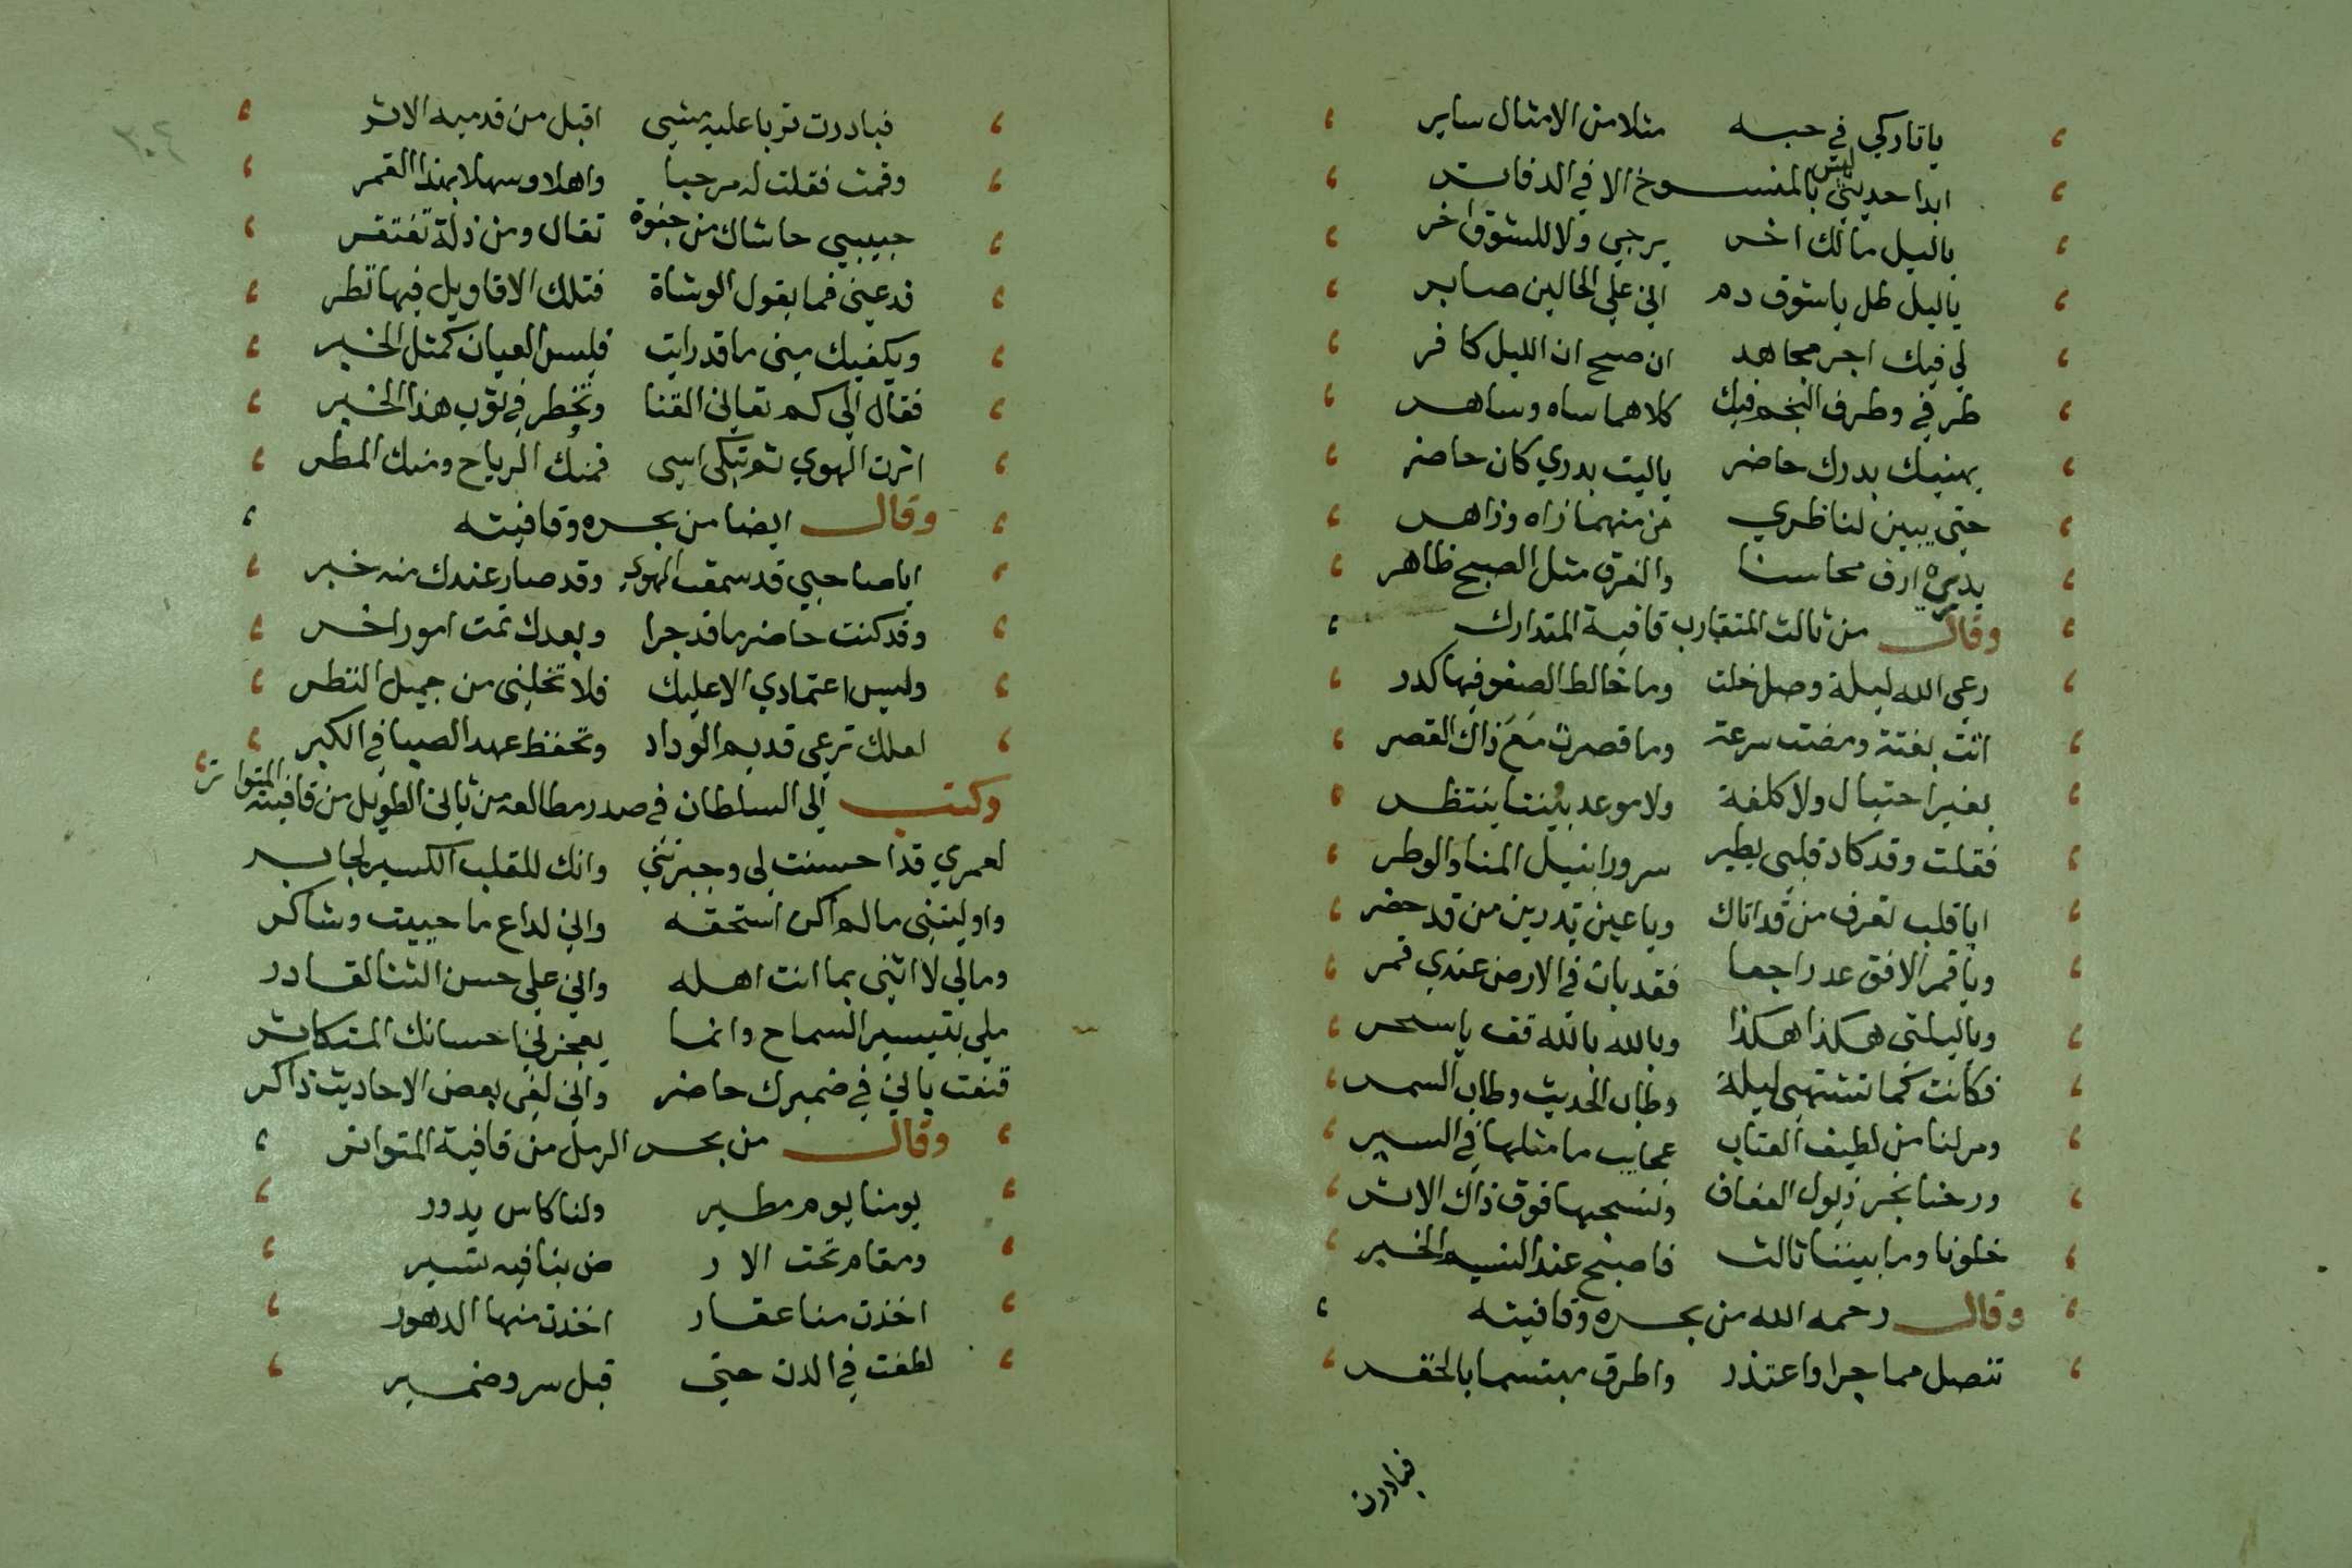 ياتاركي في حبه مثلا من الامثال ساير
ابدا حديثي ليس بالمنسوخ الا في الدفاتر
ياليل مالك اخر يرجي ولا للشوق اخر
ياليل طل ياشوق دم اني علي الحالين صابر
لي فيك اجر مجاهد ان صح ان الليل كافر
طرفي وطرف النجم فيك كلاهما ساه وساهر
يهنيك بدرك حاضر ياليت بدري كان حاضر
حتي يبين لناظري من منهما زاه وزاهر
بدري ارق محاسنا والفرق مثل الصبح ظاهر
وقال من ثالث المتقارب قافية المتدارك
رعي الله ليلة وصل خلت وما خالط الصفو فيها كدر
اتت بغتة ومضت سرعة وما قصرت مع ذاك القصر
بغير احتيال ولا كلفة ولا موعد بيننا ينتظر
فقلت وقد كاد قلبي يطير سرورا بنيل المنا والوطر
ايا قلب تعرف من قد اتاك ويا عين تدرين من قد حضر
ويا قمر الافق عد راجعا فقد بات في الارض عندي قمر
وياليلتي هكذا هكذا وبالله بالله قف ياسحر
فكانت كما تشتهي ليلة وطاب الحديث وطاب السمر
ومر لنا من لطيف العتاب عجايب ما مثلها في السير
ورحنا نجر ذيول العفاف ونسحبها فوق ذاك الاثر
خلونا وما بيننا ثالث فاصبح عند النسيم الخبر
وقال رحمه الله من بحره وقافيته
تنصل مما جرا واعتذر واطرق مبتسما بالخفر
فبادرت
٢٠٤
فبادرت تربا عليه مشي اقبل من قدميه الاثر
وقمت فقلت له مرحبا واهلا وسهلا بهذا القمر
حبيبي حاشاك من جفوة تقال ومن زلة تغتفر
فدعني فما يقول الوشاة فتلك الاقاويل فيها نظر
ويكفيك مني ما قد رايت فليس العيان كمثل الخبر
فقال الي كم تعاني القنا وتخطر في ثوب هذا الخبر
اثرت الهوي ثم تبكي اسي فمنك الرياح ومنك المطر
وقال ايضا من بحره وقافيته
اياصاحبي قد سمعت الهوي وقد صار عندك منه خبر
وقد كنت حاضر ما قد جرا وبعدك تمت امور اخر
وليس اعتمادي الا عليك فلا تخلني من جميل النظر
لعلك ترعي قديم الوداد وتحفظ عهد الصبا في الكبر
وكتب الي السلطان في صدر مطالعة من ثاني الطويل من قافية المتواتر
لعمري قد احسنت لي وجبرتني وانك للقلب الكسير لجابر
واوليتني مالم اكن استحقه واني لداع ما حييت وشاكر
ومالي لا اثني بما انت اهله واني علي حسن الثنا لقادر
ملي بتيسير السماح وانما يعجزني احسانك المتكاثر
قنعت باني في ضميرك حاضر واني لفي بعض الاحاديث ذاكر
وقال من بحر الرمل من قافية المتواتر
يومنا يوم مطير ولنا كاس يدور
ومقام تحت الار ض بنا فيه تسير
اخذت منا عقار اخذت منها الدهور
لطفت في الدن حتي قبل سر وضمير